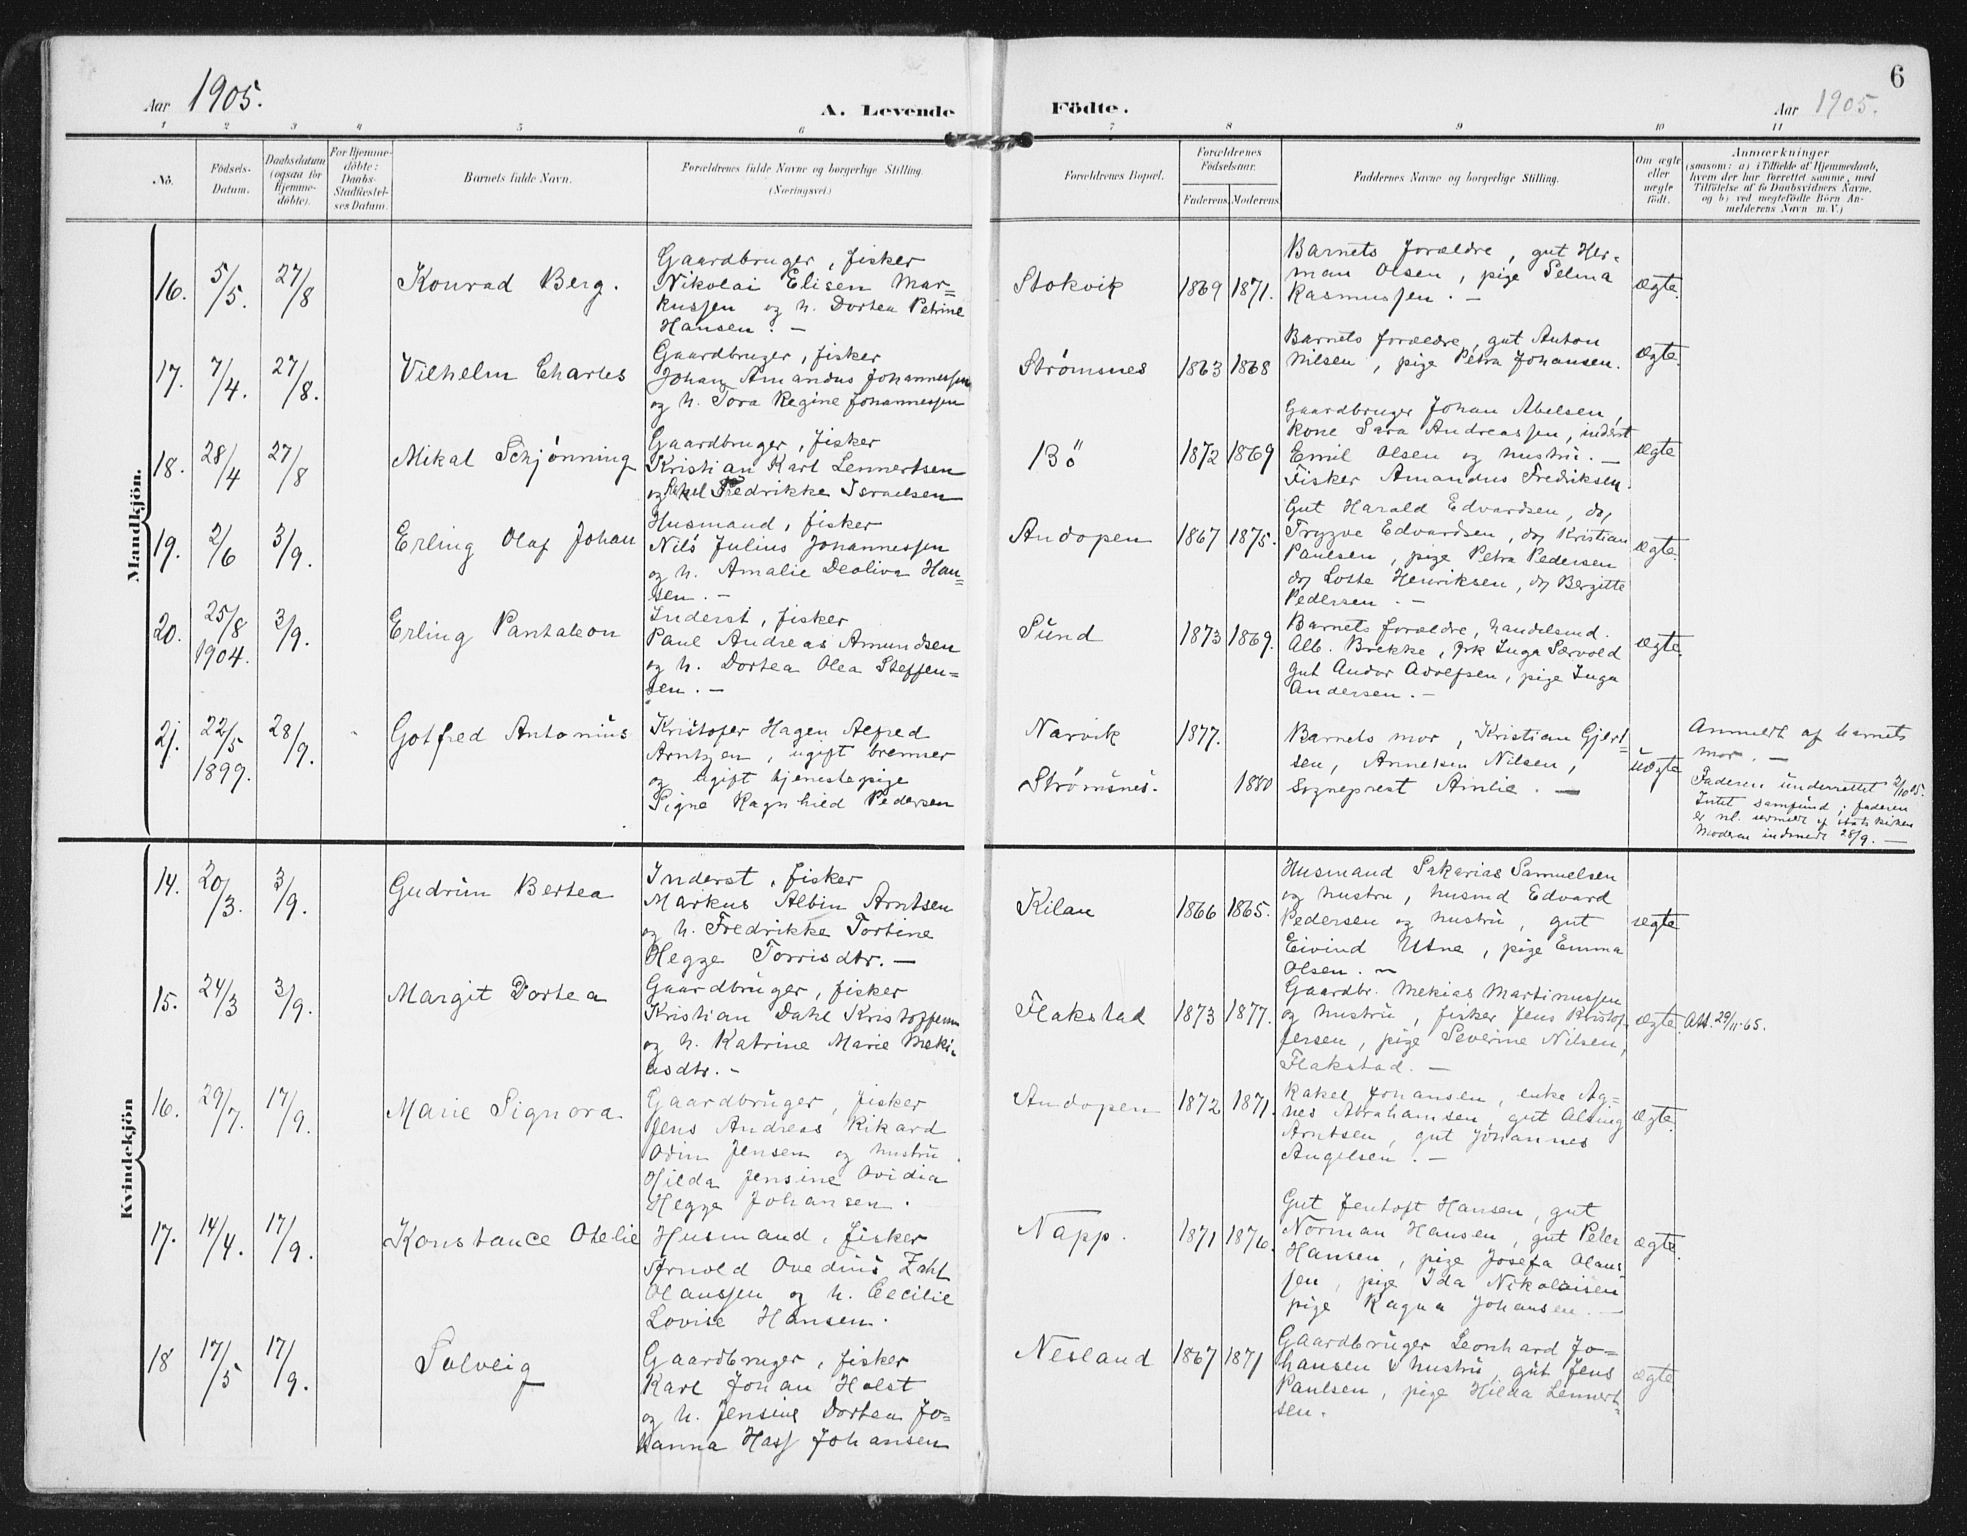 6
Aar 1905.
A. Levende Födte.
Aar 1905.
1 2 3 4 5 6 7 8 9 10 11
No.
Födsels-Datum.
Daabsdatum (ogsaa for Hjemme-döbte).
For Hjemme-döbte: Daabs-Stadfæstel-ses Datum.
Barnets fulde Navn.
Forældrenes fulde Navne og borgerlige Stilling.
(Næringsvei.)
Forældrenes Bopæl.
Forældrenes Födselsaar.
Faderens. Moderens.
Faddernes Navne og borgerlige Stilling.
Om ægte eller uægte födt.
Anmærkninger
(saasom: a) i Tilfælde af Hjemmedaab,
hvem der har forrettet samme, med
Tilföielse af to Daabsvidners Navne,
og b) ved uægtefödte Börn An-
melderens Navn m. V.)
Mandkjön.
16. 5/5. 27/8 Konrad Berg.
Gaardbruger, fisker
Nikolai Elisen Mar-
kussen og h. Dortea Petrine
Hansen. -
Stokvik 1869 1871.
Barnets forældre, gut Her-
man Olsen, pige Selma
Rasmussen. -
ægte.
17. 7/4. 27/8. Vilhelm Charles
Gaardbruger, fisker
Johan Amandus Johannessen
og h. Tora Regine Johannessen
Strømsnes 1863 1868
Barnets forældre, gut Anton
Nilsen, pige Petra Johansen.
ægte.
18. 28/4 27/8 Mikal Schjønning
Gaardbruger, fisker
Kristian Karl Lennertsen
og Fredrikke Israelsen
Bö 1872 1869
Gaardbruger Johan Abelsen,
kone Sara Andreassen, inderst
Emil Olsen og hustru. -
Fisker Amandus Fredriksen.
ægte
19. 2/6 3/9. Erling Olaf Johan
Husmand, fisker
Nils Julius Johannessen
og h. Amalie Deoliva Han-
sen. -
Andopen 1867 1875.
Gut Harald Edvardsen, do
Tryggve Edvardsen, do Kristian
Paulsen, pige Petra Pedersen
do Lotte Henriksen, do Bergitte
Pedersen. -
ægte.
20. 25/8 1904. 3/9. Erling Pantaleon
Inderst, fisker
Paul Andreas Amundsen
og h. Dortea Olea Steffen-
sen. -
Sund 1873 1869.
Barnets forældre, handelsmd.
Alb. Brekke, frk Inga Særvold
gut Andor Adolfsen, pige Inga
Andersen. -
ægte.
21. 22/5 1899. 28/9. Gotfred Antonius
Kristofer Hagen Alfred
Arntzen, ugift bremser
og ugift tjenestepige
Signe Ragnhild Pedersen
Narvik 1877.
Strømsnes. 1880
Barnets mor, Kristian Gjert-
sen, Anneken Nilsen,
Sogneprest Amlie. -
uægte
Anmeldt af barnets
mor. -
Faderen underrettet 2/10 05.
Intet samfund; faderen
er nl. udmeldt af statskirken
Moderen indmeldt 28/9. -
Kvindekjön
14. 20/3. 3/9. Gudrun Bertea
Inderst, fisker
Markus Albin Arntsen
og h. Fredrikke Tortine
Hegge Torrisdtr. -
Kilan 1866 1865.
Husmand Sakarias Samuelsen
og hustru, husmd Edvard
Pedersen og hustru, gut
Eivind Utne, pige Emma
Olsen. -
ægte
15. 24/3 3/9. Margit Dortea
Gaardbruger, fisker
Kristian Dahl Kristoffersen
og h. Katrine Marie Meki-
asdtr. -
Flakstad 1873 1877.
Gaardbr. Mekias Martinussen
og hustru, fisker Jens Kristof-
fersen, pige Severine Nilsen,
Flakstad. -
ægte. Att. 29/11-65.
16. 29/7. 17/9. Marie Signora
Gaardbruger, fisker
Jens Andreas Rikard
Odin Jensen og hustru
Hilda Jensine Ovidia
Hegge Johansen.
Andopen 1872 1871.
Rakel Johansen, enke Ag-
nes Abrahamsen, gut Alsing
Arntsen, gut Johannes
Angelsen. -
ægte.
17. 14/4. 17/9. Konstance Otelie
Husmand, fisker
Arnold Ovedius Zahl
Olaussen og h. Cecilie
Lovise Hansen.
Napp. 1871 1876.
Gut Jentoft Hansen, gut
Norman Hansen, gut Peter
Hansen, pige Josefa Olaus-
sen, pige Ida Nikolaisen
pige Ragna Johansen. -
ægte.
18 17/5 17/9. Solveig
Gaardbruger, fisker
Karl Johan Holst
og h. Jensine Dortea Jo-
hanna Hass Johansen
Nesland 1867 1871
Gaardbruger Leonhard Jo-
hansen & hustru, gut Jens
Paulsen, pige Hilda Lennert-
sen.
ægte